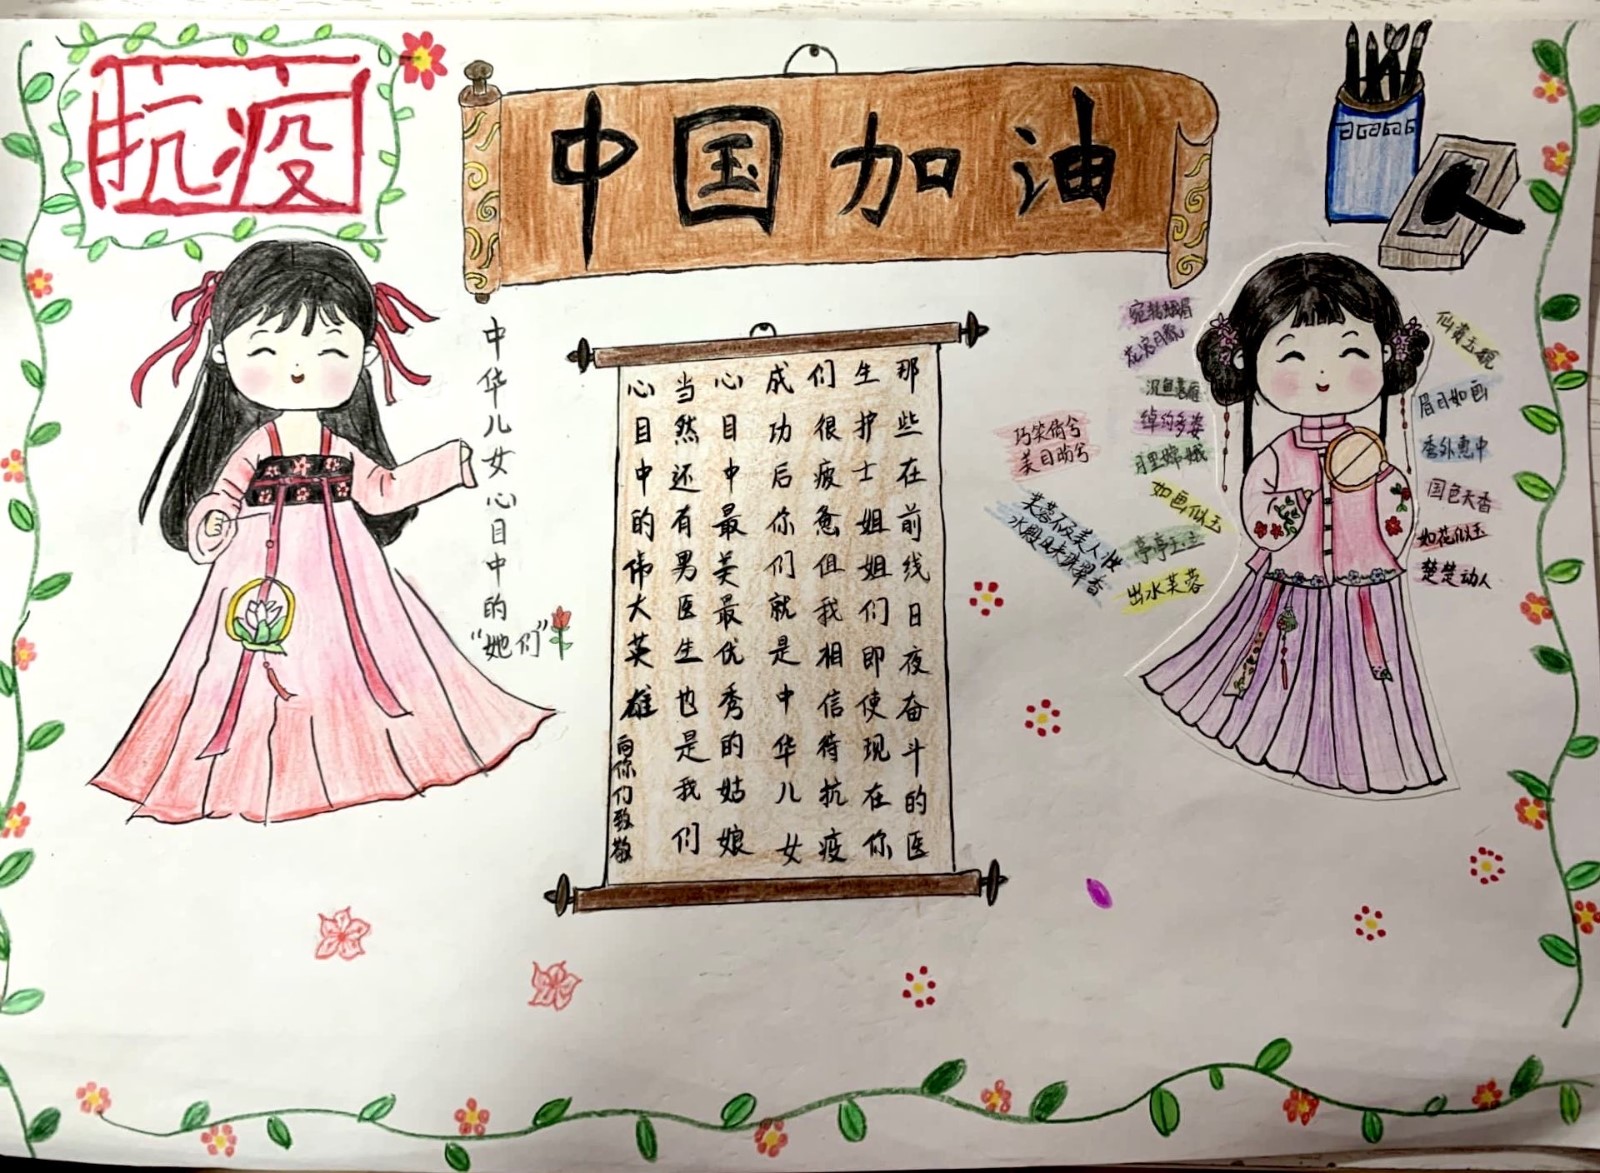 抗疫
中国加油
中华儿女心目中的
“她们”
那些在前线日夜奋斗的医
生护士姐姐们即使现在你
们很疲惫但我相信待抗疫
成功后你们就是中华儿女
心目中最美最优秀的姑娘
当然还有男医生也是我们
心目中的伟大英雄
向你们致敬
宛转蛾眉
花容月貌
沉鱼落雁
绰约多姿
月里嫦娥
巧笑倩兮
美目盼兮
如画似玉
亭亭玉立
出水芙蓉
芙蓉不及美人妆
水殿风来珠翠香
仙姿玉貌
眉目如画
秀外惠中
国色天香
如花似玉
楚楚动人